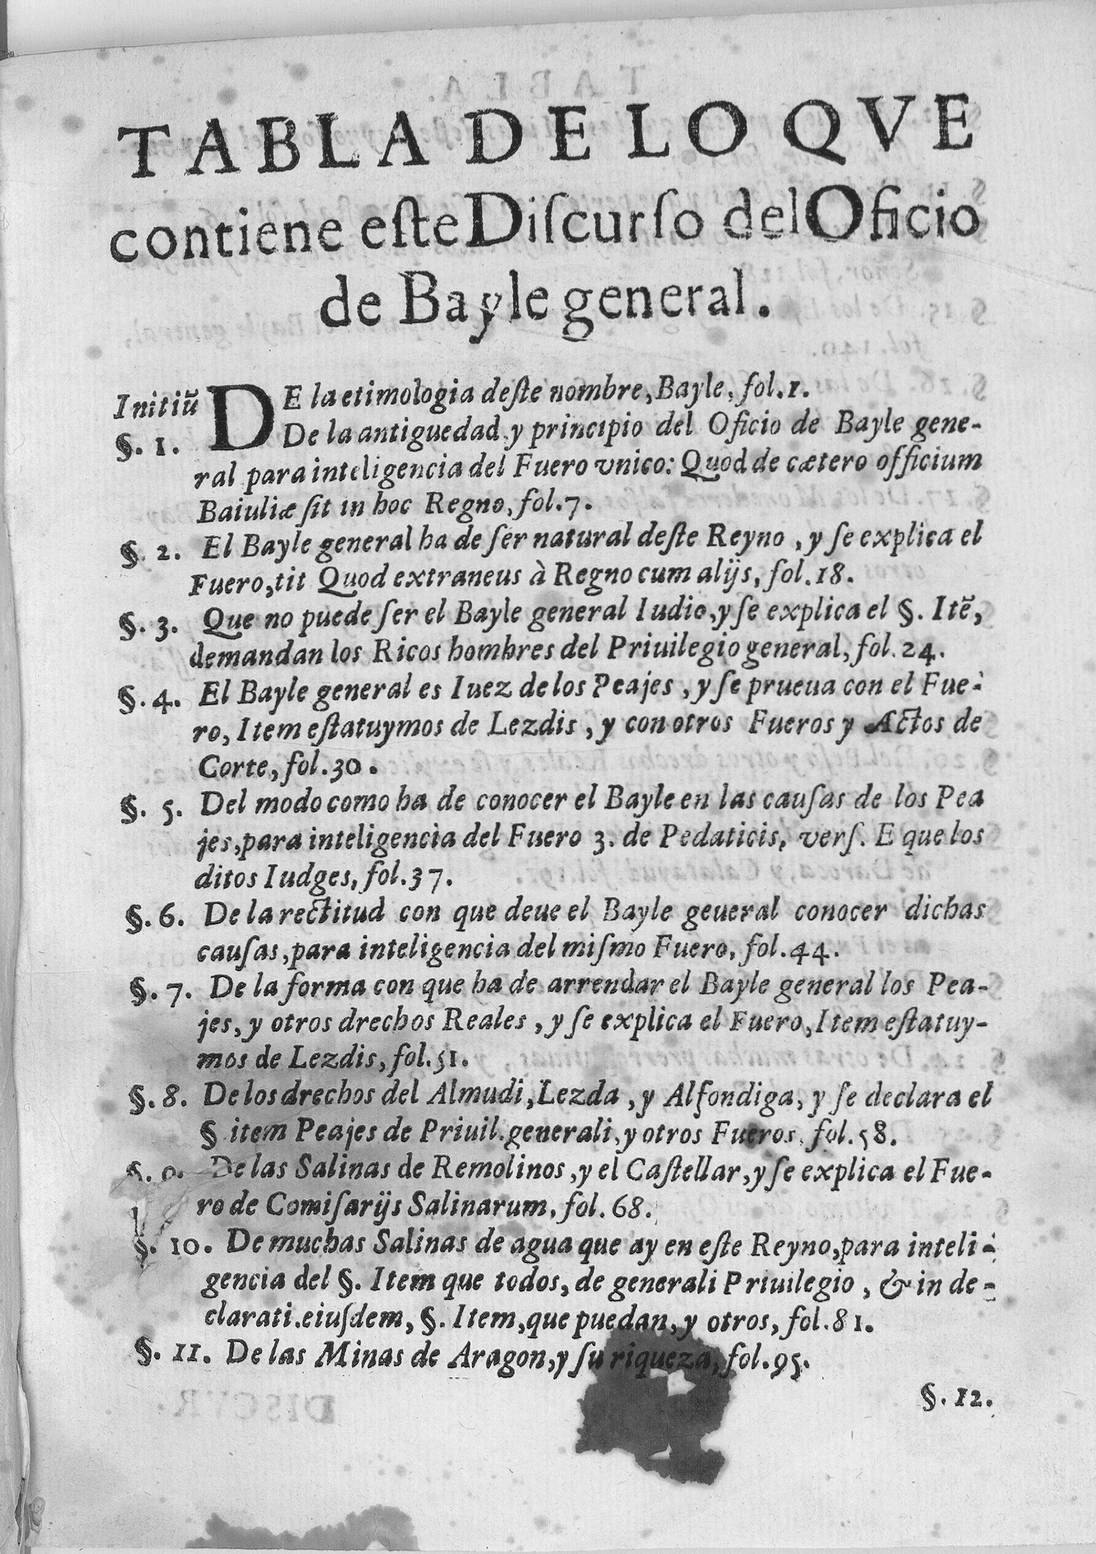 TABLA DE LO QVE
contiene eſte Diſcurſo del Oficio
de Bayle general.
Initiũ DE la etimologia deſte nombre, Bayle, fol.1.
§. 1. De la antiguedad y principio del Oficio de Bayle gene-
ral para inteligencia del Fuero vnico: Quod de cætero officium
Baiuliæ ſit in hoc Regno, fol.7.
§. 2. El Bayle general ha de ſer natural deſte Reyno, y ſe explica el
Fuero, tit Quod extraneus à Regno cum alijs, fol.18.
§. 3. Que no puede ſer el Bayle general Iudio, y ſe explica el §. Itẽ,
demandan los Ricos hombres del Priuilegio general, fol.24.
§. 4. El Bayle general es Iuez de los Peajes, y ſe prueua con el Fue-
ro, Item eſtatuymos de Lezdis, y con otros Fueros y Actos de
Corte, fol.30.
§. 5. Del modo como ha de conocer el Bayle en las cauſas de los Pea
jes, para inteligencia del Fuero 3. de Pedaticis, verſ. E que los
ditos Iudges, fol.37.
§. 6. De la rectitud con que deue el Bayle geueral conocer dichas
cauſas, para inteligencia del miſmo Fuero, fol.44.
§. 7. De la forma con que ha de arrendar el Bayle general los Pea-
jes, y otros drechos Reales, y ſe explica el Fuero, Item eſtatuy-
mos de Lezdis, fol.51.
§. 8. De los drechos del Almudi, Lezda, y Alfondiga, y ſe declara el
§ item Peajes de Priuil.generali, y otros Fueros, fol.58.
§. 9. De las Salinas de Remolinos, y el Caſtellar, y ſe explica el Fue-
ro de Comiſarijs Salinarum, fol. 68.
§. 10. De muchas Salinas de agua que ay en eſte Reyno, para inteli-
gencia del §. Item que todos, de generali Priuilegio, & in de-
clarati.eiuſdem, §. Item, que puedan, y otros, fol.81.
§. 11. De las Minas de Aragon, y ſu riqueza, fol.95.
§. 12.